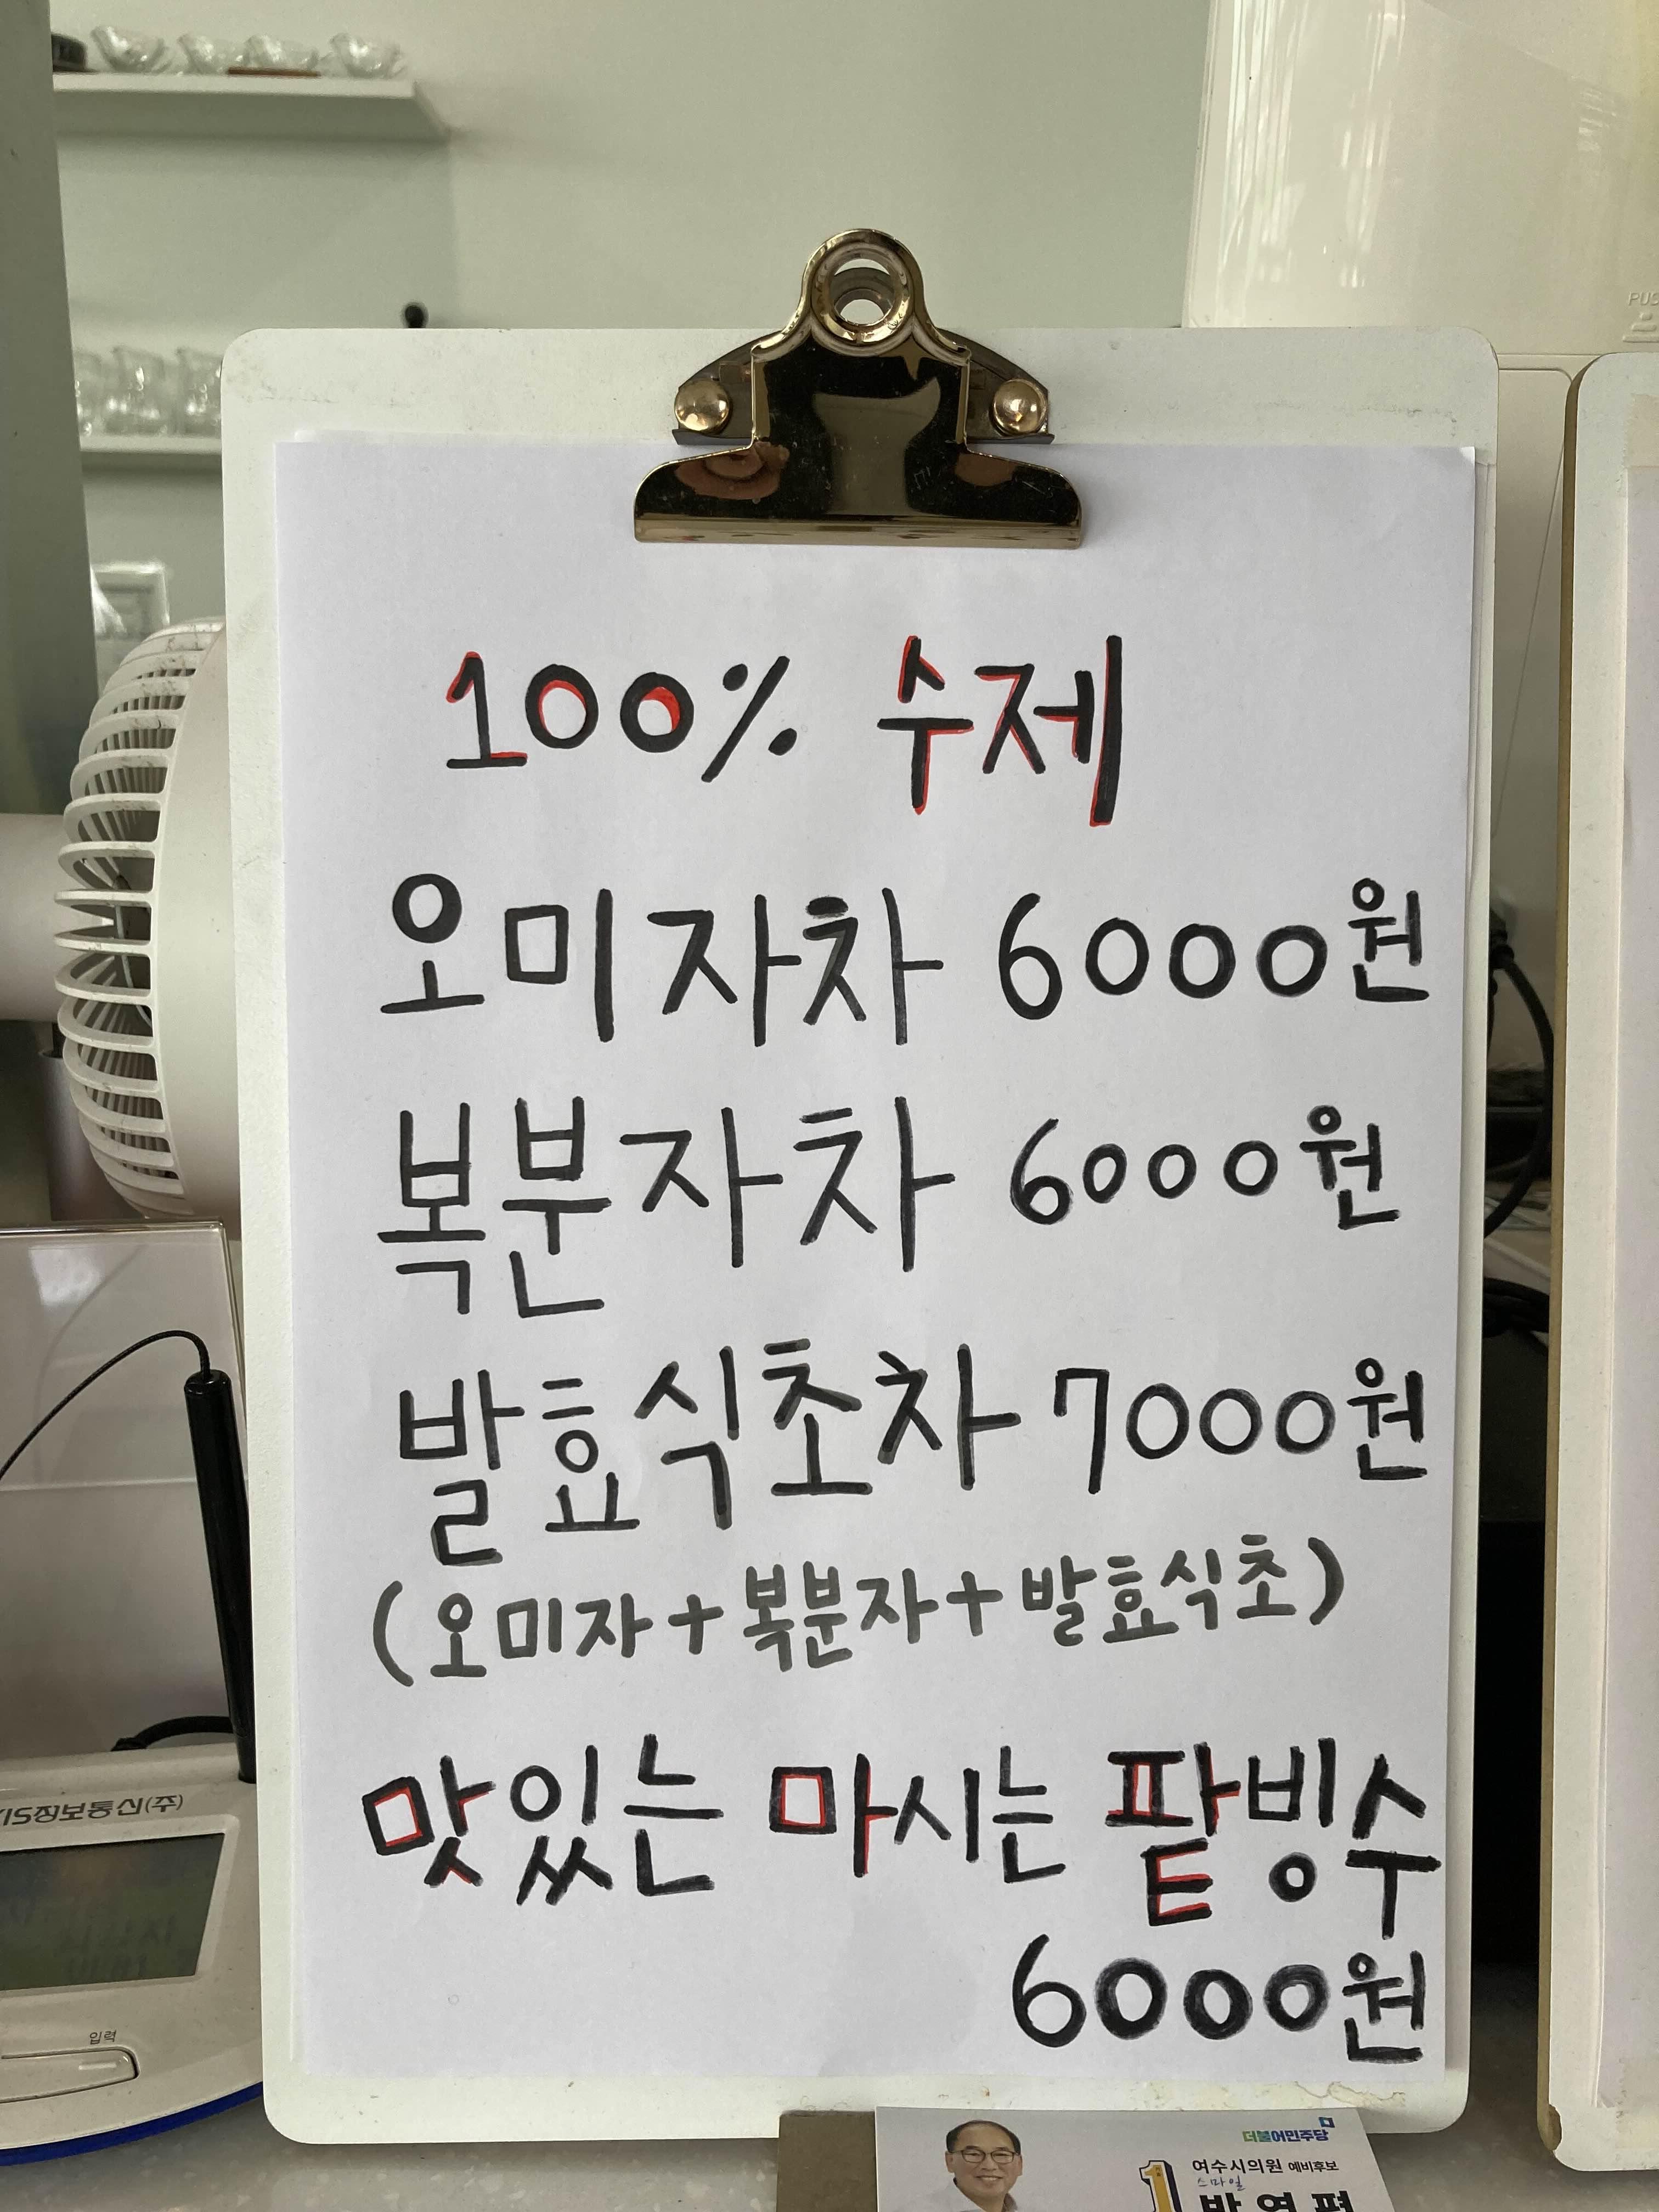 100% 수제
오미자차 6000원
복분자차 6000원
발효식초차 7000원
(오미자+복분자+발효식초)
맛있는 마시는 팥빙수
6000원
PUS
정보통신(주)
입력
더불어민주당
1
여수시의원 예비후보
스마일